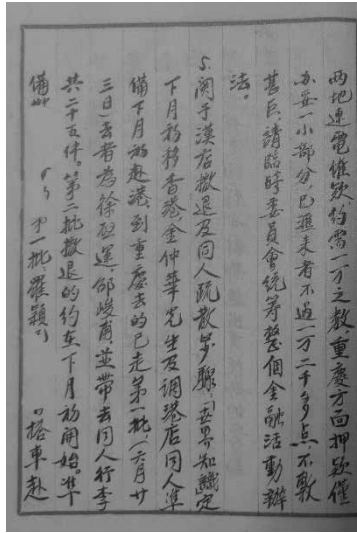 两地連電催欵約需一万之数，重慶方面押欵僅
办妥一小部分，已滙来者不过一万二千多点不敷
甚巨，請臨時委員會統筹整個金融活動辦
法。
5.関于漢店撤退及同人疏散步驟，「世界知識定
下月初移香港金仲華先生及调港店同人準
備下月初赴港到重慶去的已走第一批，（六月廿
三日）去者為徐啓運，邵峻甫，並带去同人行李
共二十五件。第二批撤退的約在下月初開始。準
備 第一批，羅穎 搭車赴